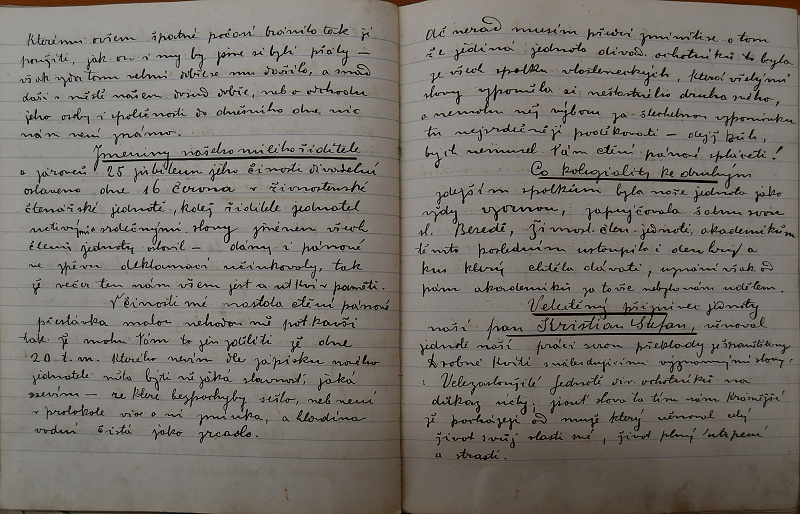 Kterému ovšem špatné počasí bránilo tak ji
použíti, jak on i my by jsme si byli přáli —
však vzdor tomu velmi dobře se mu dařilo, a snad
daří v městě našem dosud dobře, neb o odchodu
jeho osoby i společnosti do dnešního dne nic
nám není známo.
Jmeniny našeho milého řiditele
a zároveň 25 jubileum jeho činosti divadelní
oslaveno dne 16 června v živnostenské
čtenářské jednotě, kdež řiditele jednatel
srdečnými slovy jménem všech
členů jednoty oslovil — dámy i pánové
ve zpěvu, deklamaci účinkovaly, tak
že večer ten nám všem jest a utkví v paměti.
V činosti mé nastala ctění pánové
přestávka malou nehodou mě potkavší
tak že mohu Vám to jen zděliti že dne
20 t. m. kterého nevím dle zápisku nového
jednatele měla býti nějaká slavnost, jaká
nevím — ze které bezpochyby sešlo, neb není
v protokole více o ní zmínka, a hladina
vodní čistá jako zrcadlo.
Ač nerad musím předci zmíniti se o tom
že jediná jednota divad. ochotníků to byla
ze všech spolků vlasteneckých, která vřelými
slovy vzpoměla si nešťastného druha svého,
a nemohu než výboru za šlechetnou vzpomínku
tu nejsrdečněji poděkovati — dejž Bůh,
bych nemusel Vám ctění pánové spláceti!
Co kolegiality ke druhým
zdejším spolkům byla naše jednota jako
vždy vzornou, zapůjčovala šatnu svou
sl. Besedě, živnost. čten. jednotě, akademikům
těmto posledním ustoupila i den hry a
kus který chtěla dávati, uznání však od
pánů akademiků za to vše nebylo nám udělem.
Velectěný příznivec jednoty
naší pan Kristian Stefan, věnoval
jednotě naší práci svou překlady ze španělštiny
Drobné kvítí následujícími významnými slovy:
: Velezasloužilé Jednotě div. ochotníků na
důkaz úcty, jsouť slova ta tím nám krásnější
že pocházejí od muže který věnoval celý
život svůj vlasti své, život plný útrpení
a strastí.